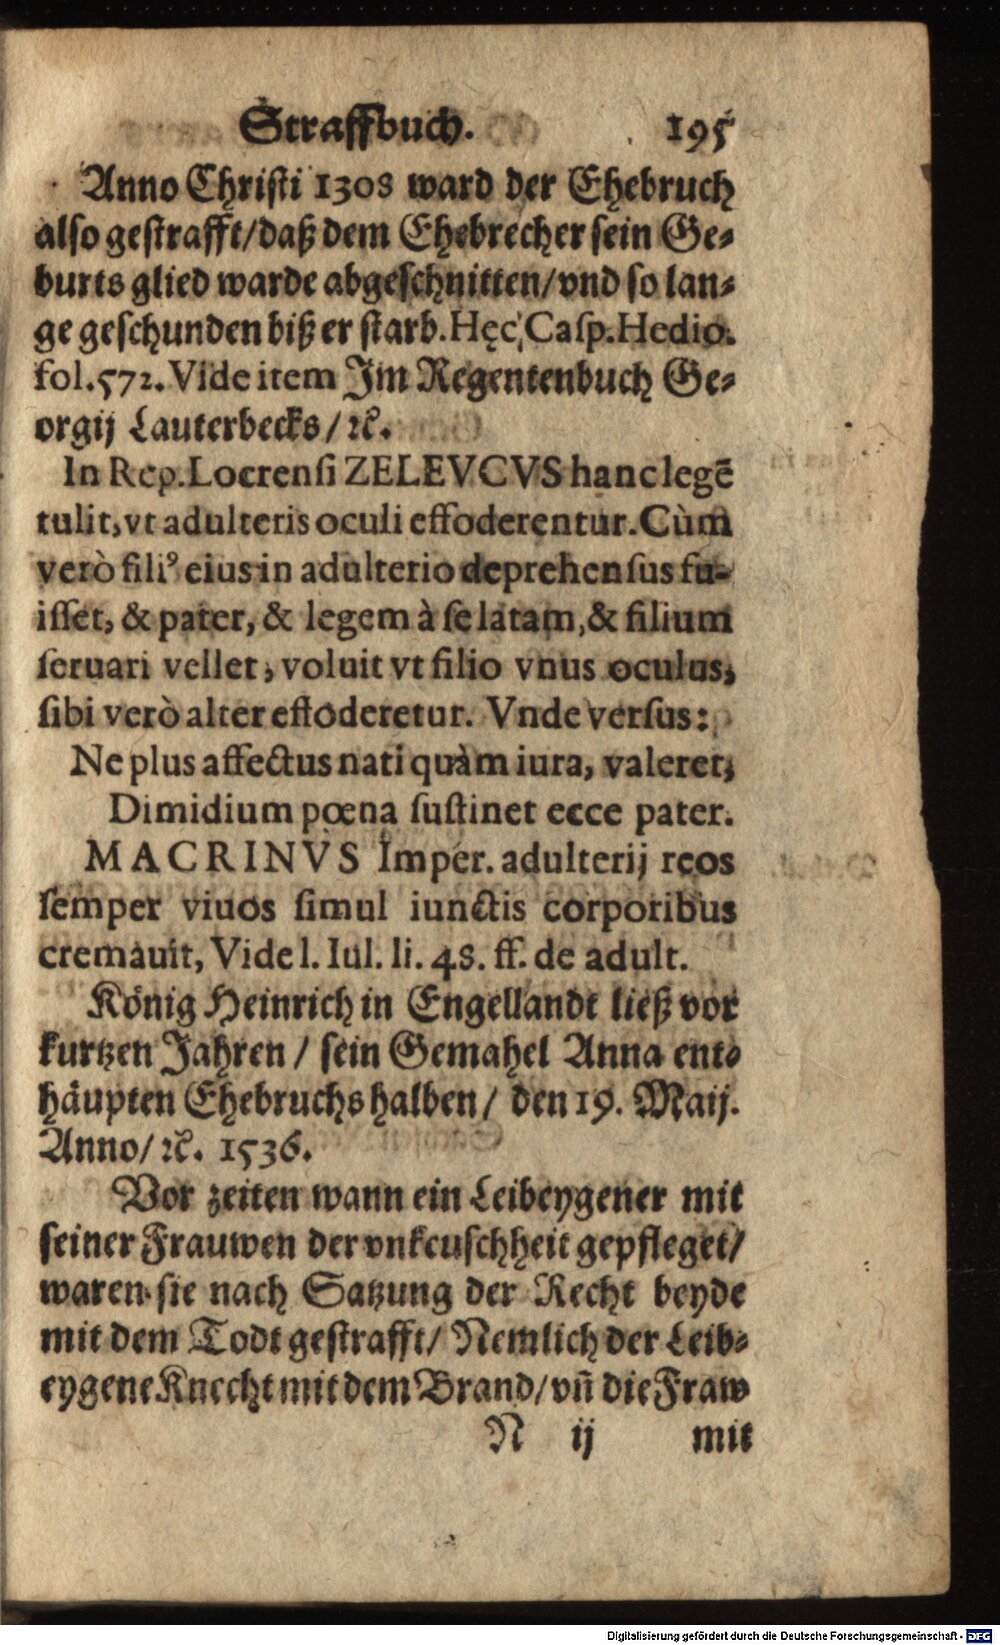 Straffbuch. 195
Anno Christi 1308 ward der Ehebruch
also gestrafft/daß dem Ehebrecher sein Ge⸗
burts glied warde abgeschnitten/vnd so lan⸗
ge geschunden biß er starb. Hęc, Casp. Hedio.
fol. 572. Vide item Im Regentenbuch Ge⸗
orgij Lauterbecks/ ꝛc.
In Rep. Locrensi ZELEVCVS hanc legē
tulit, vt adulteris oculi effoderentur. Cùm
verò fili⁹ eius in adulterio deprehensus fu-
isset, & pater, & legem à se latam, & filium
seruari vellet, voluit vt filio vnus oculus,
sibi verò alter effoderetur. Vnde versus:
Ne plus affectus nati quàm iura, valeret,
Dimidium pœna sustinet ecce pater.
MACRINVS Imper. adulterij reos
semper viuos simul iunctis corporibus
cremauit, Vide l. Iul. li. 48. ff. de adult.
König Heinrich in Engellandt ließ vor
kurtzen Jahren / sein Gemahel Anna ent⸗
häupten Ehebruchs halben/ den 19. Maij.
Anno/ ꝛc. 1536.
Vor zeiten wann ein Leibeygener mit
seiner Frauwen der vnkeuschheit gepfleget/
waren sie nach Satzung der Recht beyde
mit dem Todt gestrafft/ Nemlich der Leib⸗
eygene Knecht mit dem Brand/ vñ die Fraw
N ij mit
Digitalisierung gefördert durch die Deutsche Forschungsgemeinschaft - DFG